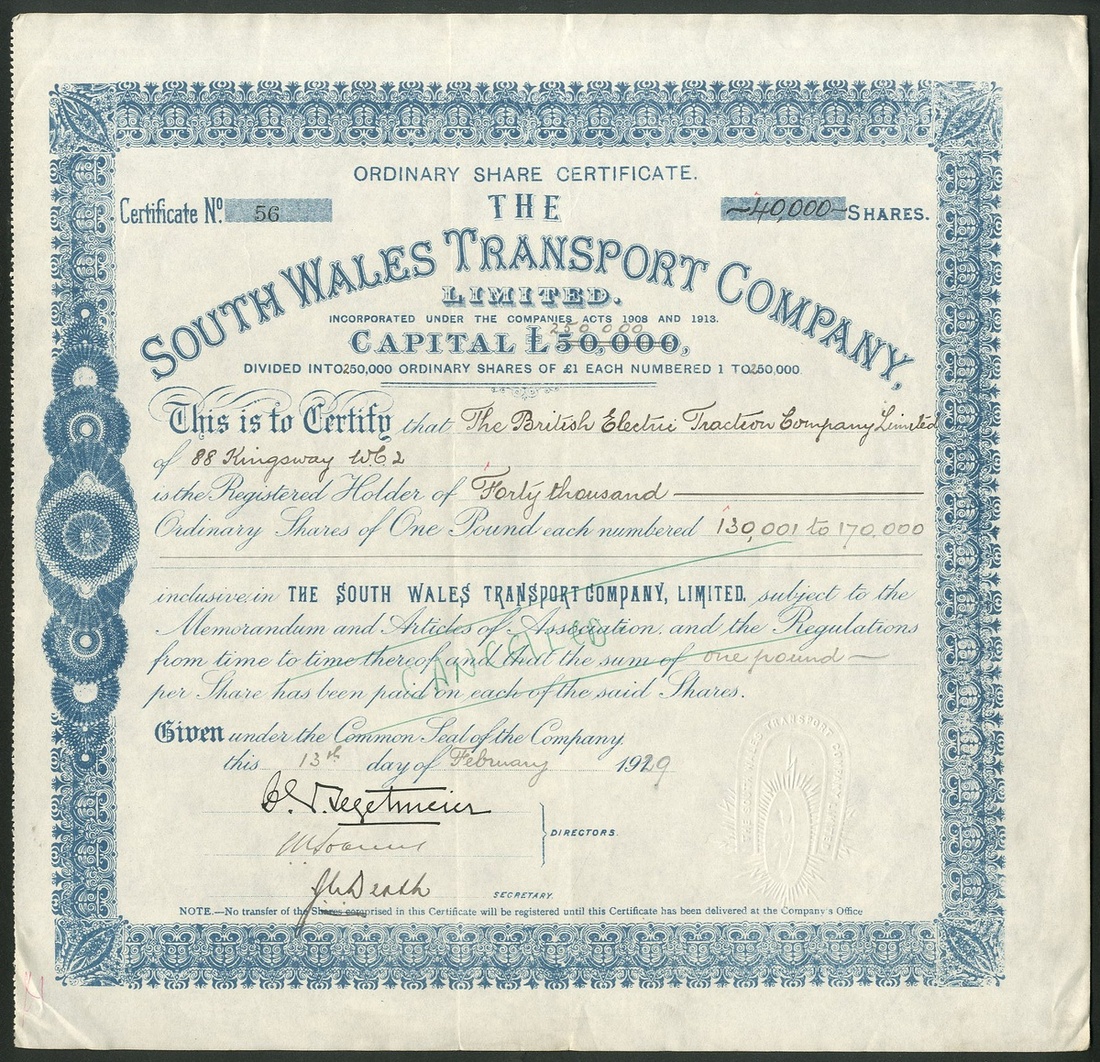 ORDINARY SHARE CERTIFICATE.
Certificate No. 56
~40,000~ SHARES.
THE
SOUTH WALES TRANSPORT COMPANY,
LIMITED.
INCORPORATED UNDER THE COMPANIES ACTS 1908 AND 1913.
250,000
CAPITAL £50,000,
DIVIDED INTO 250,000 ORDINARY SHARES OF £1 EACH NUMBERED 1 TO 250,000.
This is to Certify that The British Electric Traction Company Limited
of 88 Kingsway W.C.2
is the Registered Holder of Forty thousand
Ordinary Shares of One Pound each numbered 130,001 to 170,000
inclusive in THE SOUTH WALES TRANSPORT COMPANY, LIMITED. subject to the
Memorandum and Articles of Association, and the Regulations
from time to time thereof and that the sum of one pound
per Share has been paid on each of the said Shares.
CANCELLED
Given under the Common Seal of the Company.
this 13th day of February 1929
Tegetmeier
DIRECTORS.
Death
SECRETARY.
NOTE.—No transfer of the Shares comprised in this Certificate will be registered until this Certificate has been delivered at the Company's Office
THE SOUTH WALES TRANSPORT COMPANY